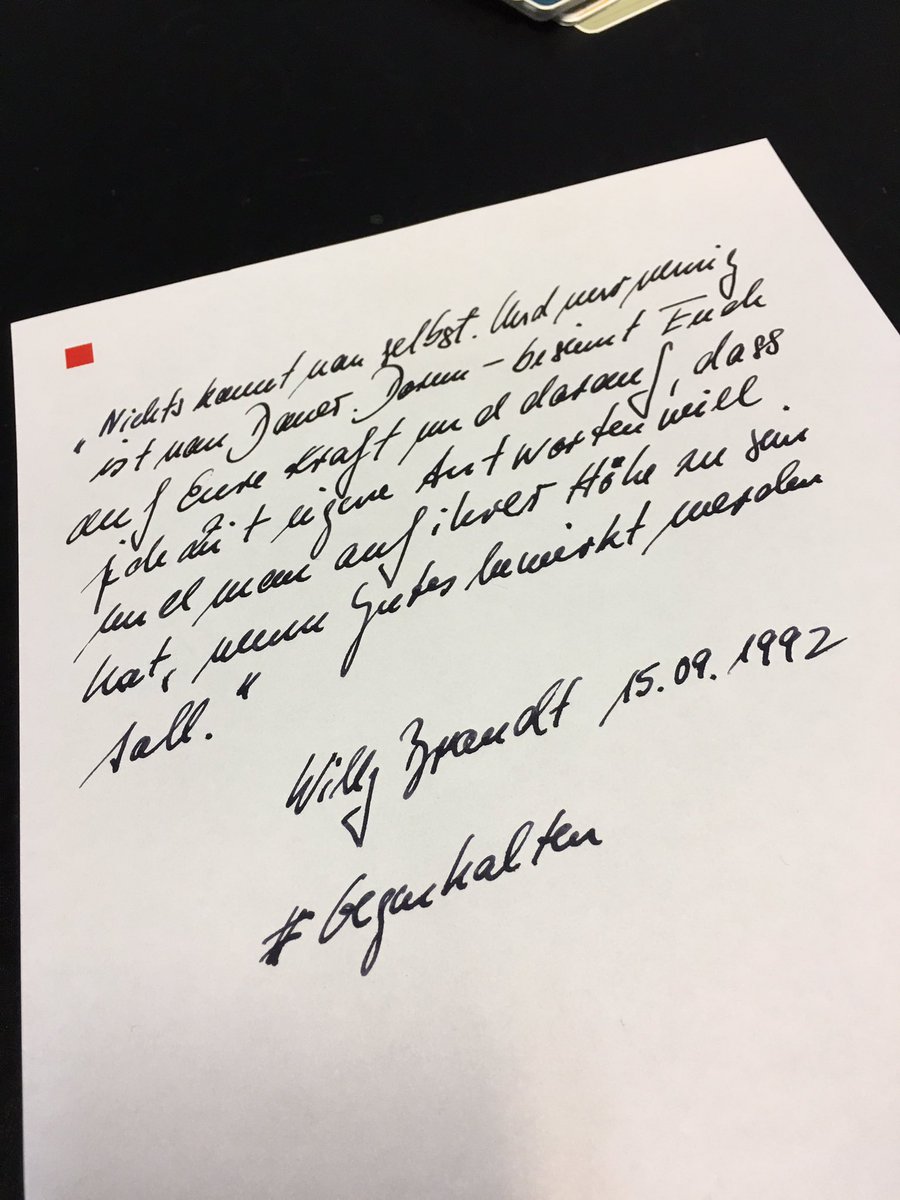 „Nichts kommt von selbst. Und nur wenig
ist von Dauer. Darum – besinnt Euch
auf Eure Kraft und darauf, dass
jede Zeit eigene Antworten will
und man auf ihrer Höhe zu sein
hat, wenn Gutes bewirkt werden
soll.“
Willy Brandt 15.09.1992
#Gegenhalten